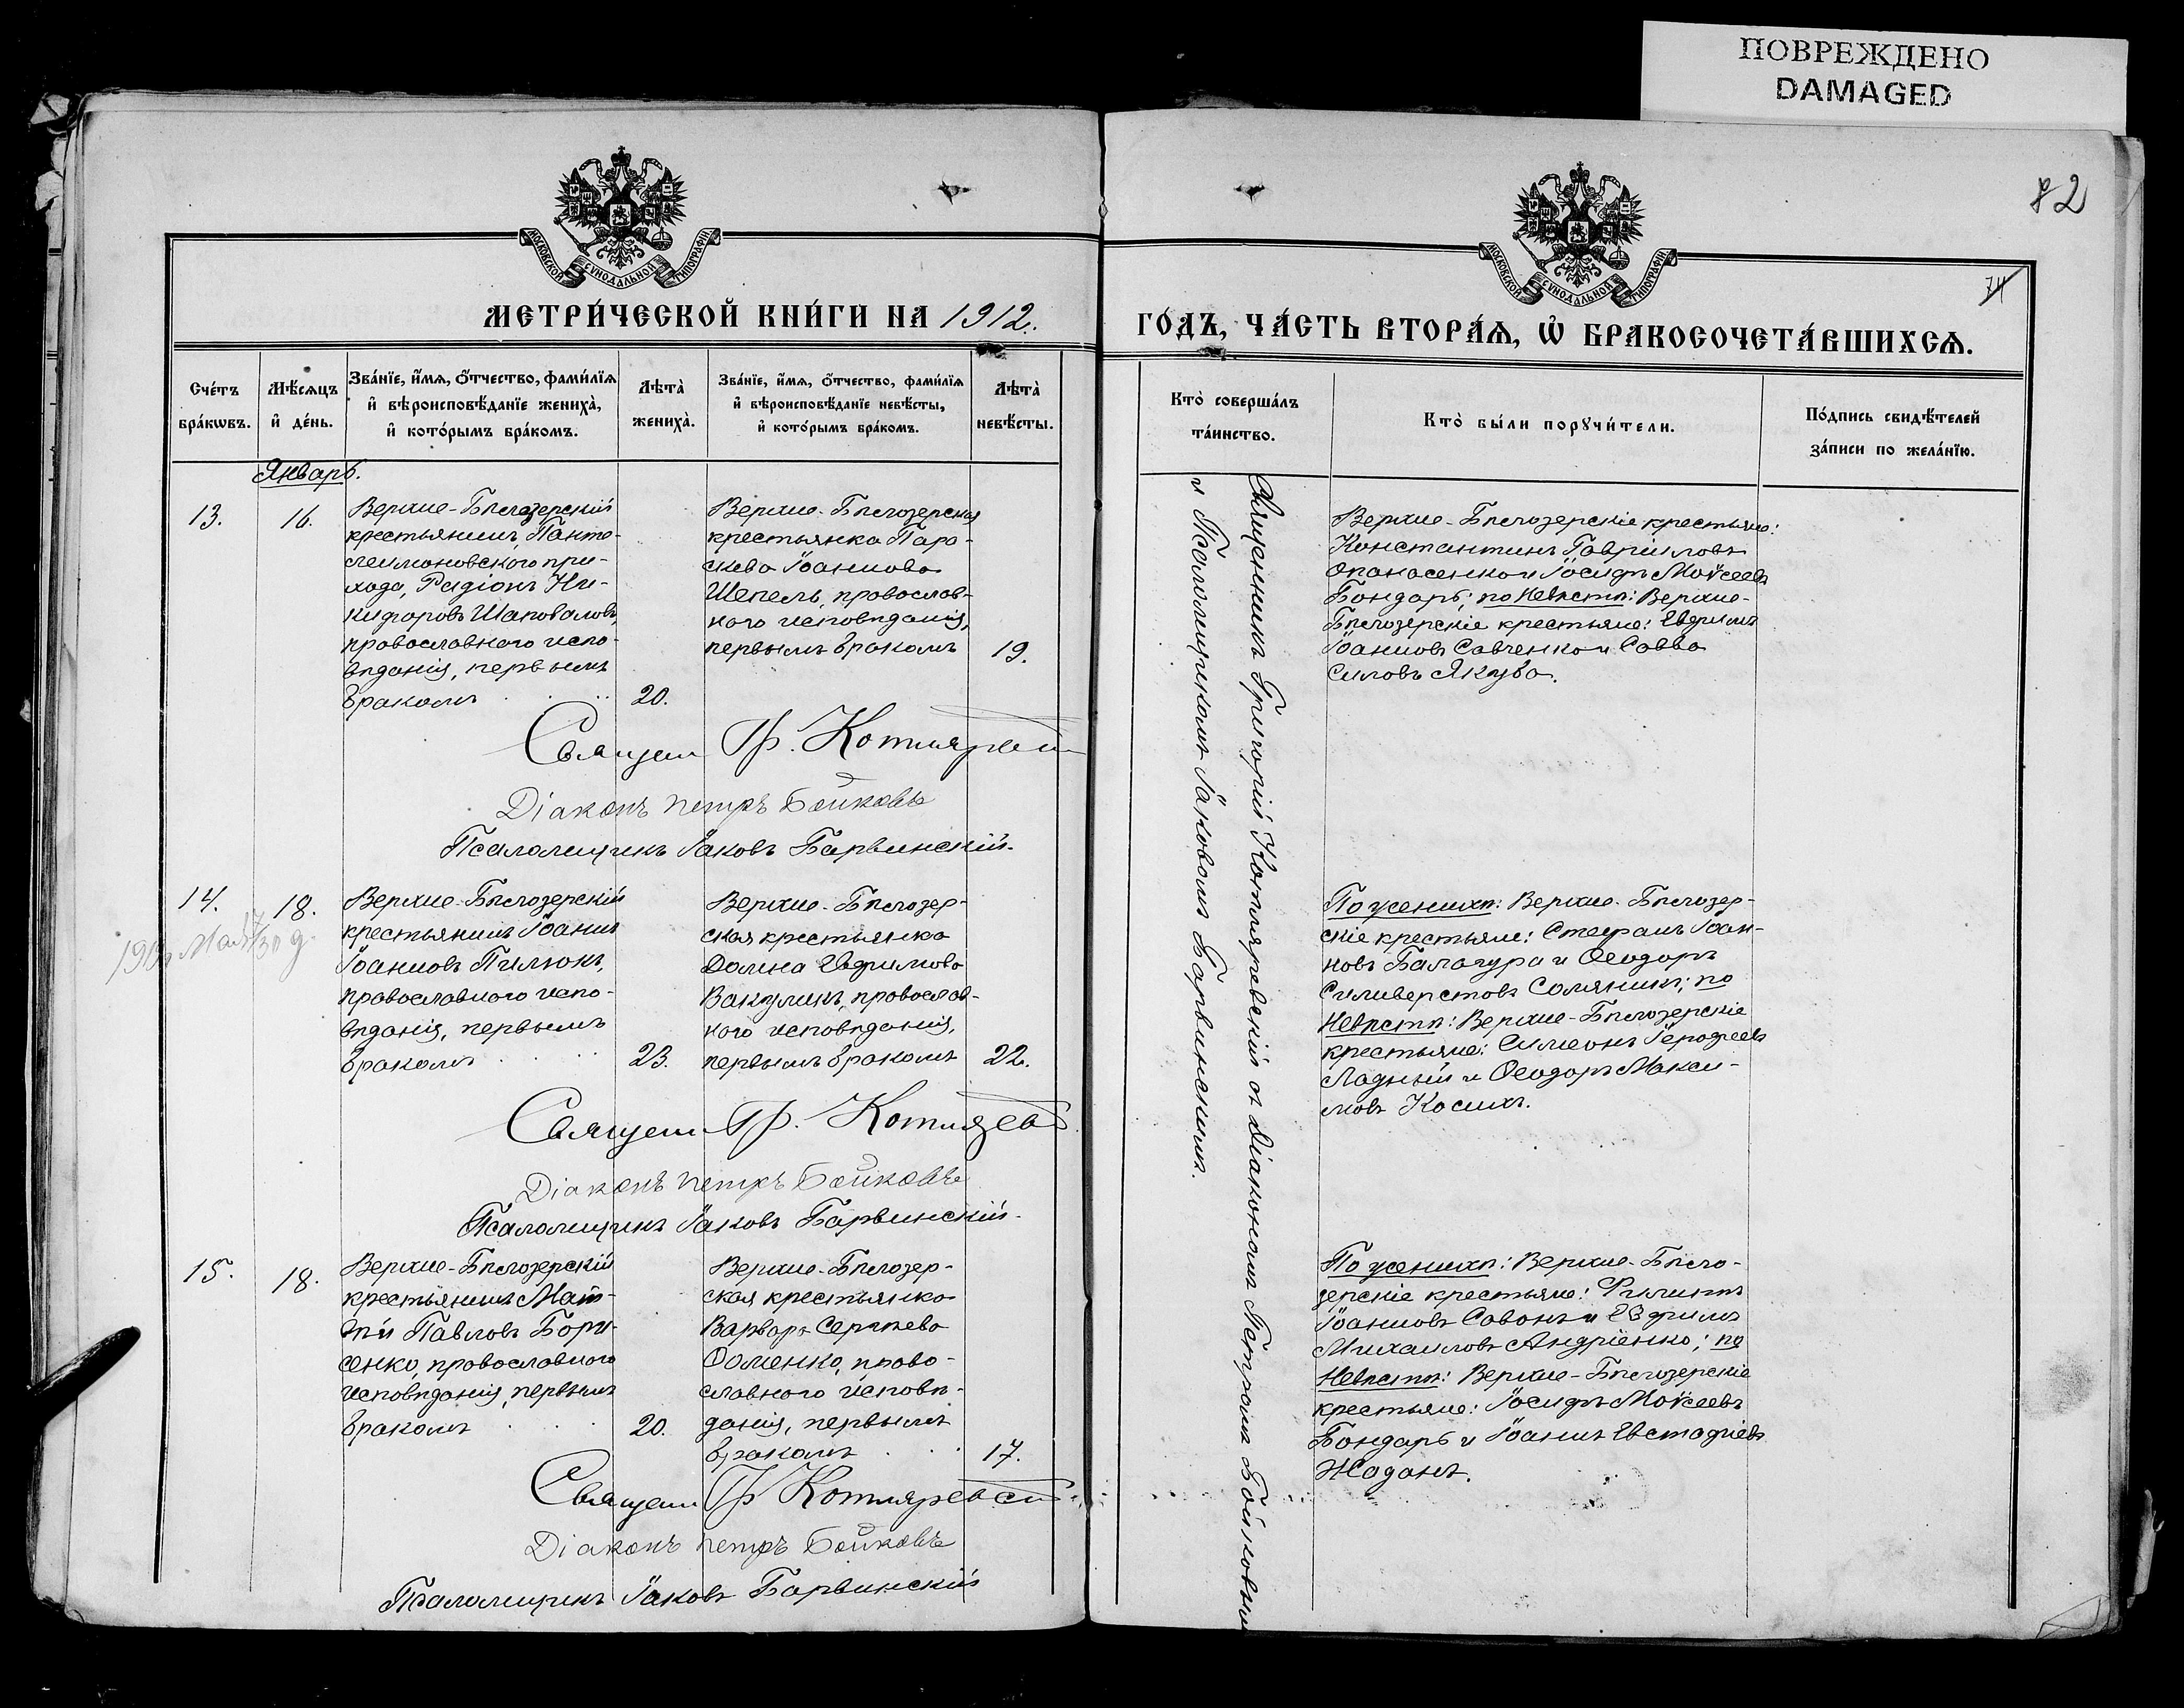 ПОВРЕЖДЕНО
DAMAGED
82
74
МОСКОВСКОЙ СѴНОДАЛЬНОЙ ТИПОГРАФІИ
МОСКОВСКОЙ СѴНОДАЛЬНОЙ ТИПОГРАФІИ
МЕТРИ́ЧЕСКОЙ КНИ́ГИ НА 1912.
ГО́ДЪ, ЧА́СТЬ ВТОРА́Ѧ, Ѽ БРАКОСОЧЕТА́ВШИХСѦ.
Сче́тъ
бра́кѡвъ.
Мѣ́сѧцъ
и҆ де́нь.
Зва́нїе, и҆́мѧ, о҆́тчество, фами́лїѧ
и҆ вѣроисповѣ́данїе жениха̀,
и҆ кото́рымъ бра́комъ.
Лѣта̀
жениха̀.
Зва́нїе, и҆́мѧ, о҆́тчество, фами́лїѧ
и҆ вѣроисповѣ́данїе невѣ́сты,
и҆ кото́рымъ бра́комъ.
Лѣта̀
невѣ́сты.
Кто̀ соверша́лъ
та́инство.
Кто̀ бы́ли порꙋчи́тели.
По́дпись свидѣ́телей
за́писи по жела́нїю.
Январь.
13.
16.
Верхне-Бѣлозерскій
крестьянинъ, Панте-
леимоновского при-
хода, Родіонъ Ни-
кифоровъ Шаповаловъ,
православнаго испо-
вѣданія, первымъ
бракомъ
20.
Верхне-Бѣлозерская
крестьянка Пара-
скева Іоаннова
Шепель, православ-
наго исповѣданія,
первымъ бракомъ
19.
Верхне-Бѣлозерскіе крестьяне:
Константинъ Гавриловъ
Опанасенко и Іосифъ Моѵсеевъ
Бондарь; по невѣстѣ: Верхне-
Бѣлозерскіе крестьяне: Евфимъ
Іоанновъ Савченко и Савва
Силовъ Якуба.
Священ Гр. Котляревск
Діаконъ Петръ Бойковъ
Псаломщикъ Іаковъ Барвинскій.
14.
18.
Мая
Верхне-Бѣлозерскій
крестьянинъ Іоаннъ
Іоанновъ Пилюкъ,
православного испо-
вѣданія, первымъ
бракомъ
23.
Верхне-Бѣлозер-
ская крестьянка
Домна Евфимова
Вакулинъ, православ-
ного исповѣданія,
первымъ бракомъ
22.
По женихѣ: Верхне-Бѣлозер-
скіе крестьяне: Стефанъ Іоан-
новъ Балагура и Ѳеодоръ
Силиверстовъ Соляникъ; по
невѣстѣ: Верхне-Бѣлозерскіе
крестьяне: Симеонъ Іерофеевъ
Ладный и Ѳеодоръ Макси-
мовъ Косихъ.
Священ Гр. Котлярев
Діаконъ Петръ Бойковъ
Псаломщикъ Іаковъ Барвинскій.
15.
18.
Верхне-Бѣлозерскій
крестьянинъ Мат-
ѳій Павловъ Бори-
сенко, православного
исповѣданія, первымъ
бракомъ
20.
Верхне-Бѣлозер-
ская крестьянка
Варвара Сергѣева
Ѳоменко, право-
славного исповѣ-
данія, первымъ
бракомъ
17.
По женихѣ: Верхне-Бѣло-
зерскіе крестьяне: Филиппъ
Іоанновъ Савонъ и Евфимъ
Михаиловъ Андріенко; по
невѣстѣ: Верхне-Бѣлозерскіе
крестьяне: Іосифъ Моѵсеевъ
Бондарь и Іоаннъ Евстафіевъ
Жаданъ.
Священ Гр Котляревск
Діаконъ Петръ Бойковъ
Псаломщикъ Іаковъ Барвинскій
Священникъ Григорій Котляревскій съ діакономъ Петромъ Бойковымъ
и Псаломщикомъ Іаковомъ Барвинскимъ.